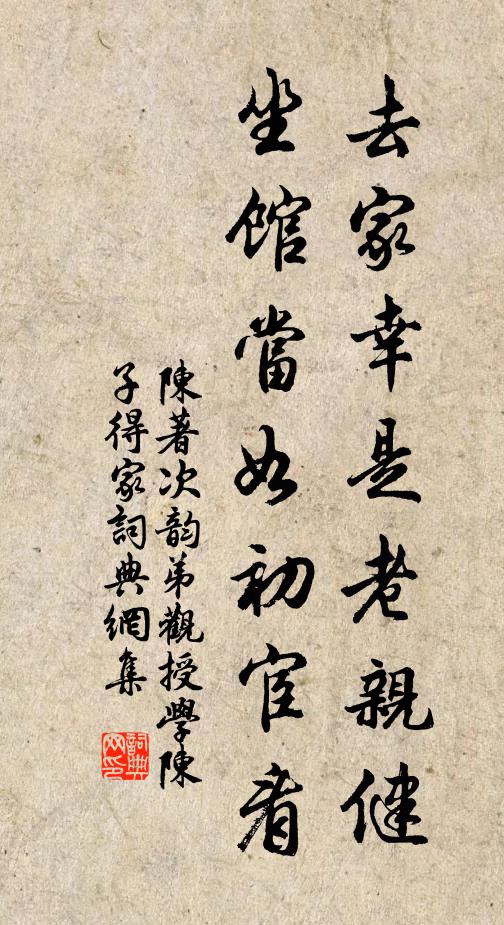 去家幸是老親健
坐館當如初宦看
陳著次韵弟觀授學陳
子得家詞典網集
詞典網印